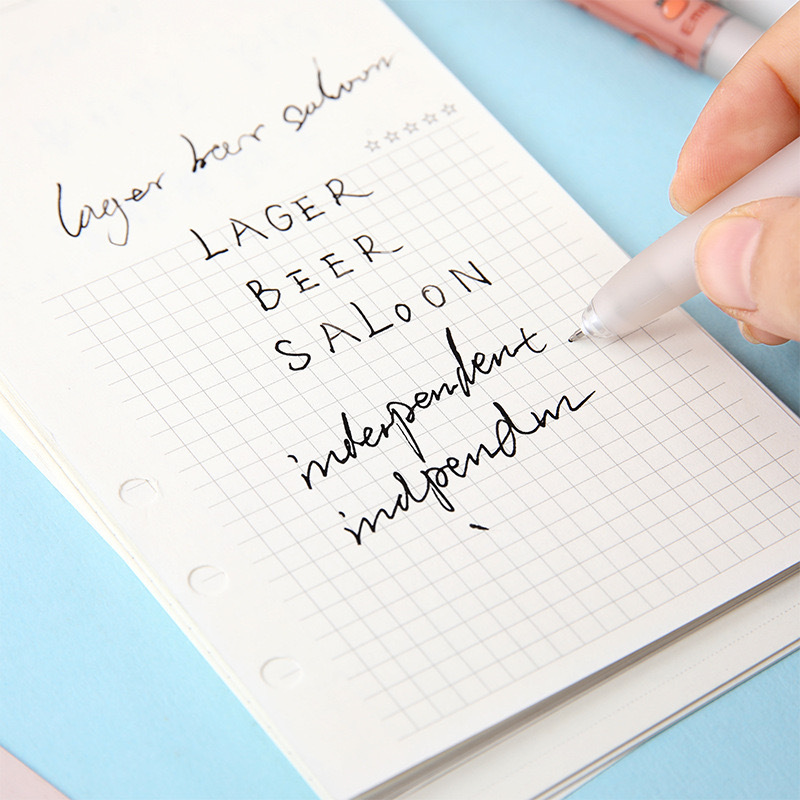 lager beer saloon
LAGER
BEER
SALOON
independent